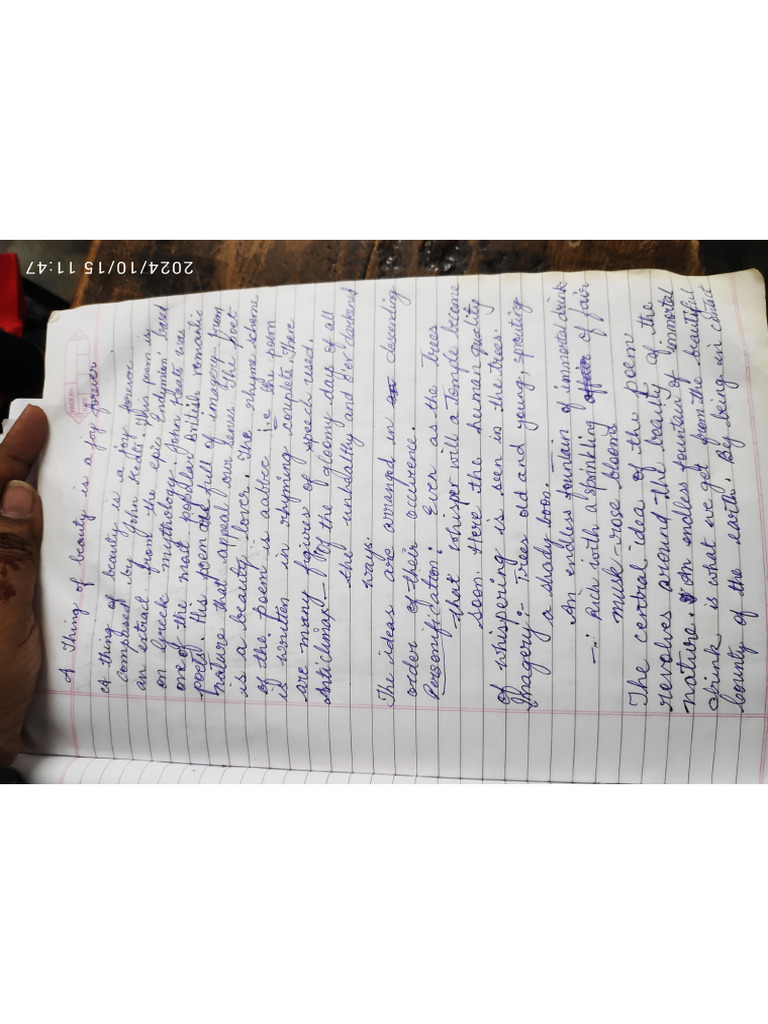 A Thing of beauty is a joy forever
A thing of beauty is a joy forever
composed by John Keats. This poem is
an extract from the epic Endymion based
on Greek mythology. John Keats was
one of the most popular British romantic
poets. His poem are full of imagery from
nature that appeal our senses. The poet
is a beauty lover. The rhyme scheme
of the poem is aabbcc ie the poem
is written in rhyming couplets. There
are many figures of speech used.
Anticlimax - Of the gloomy days of all
the unhealthy and o'er darkened
ways.
The ideas are arranged in descending
order of their occurence.
Personification: Even as the trees
that whisper will a Temple become
soon. Here the human quality
of whispering is seen in the trees.
Imagery :- Trees old and young, sprouting
a shady boon.
An endless fountain of immortal drink
-: Rich with a sprinkling of fair
musk-rose blooms
The central idea of the poem
revolves around the beauty of the
nature. An endless fountain of immortal
drink is what we get from the beautiful
bounty of the earth. By being in closest
2024/10/15 11:47